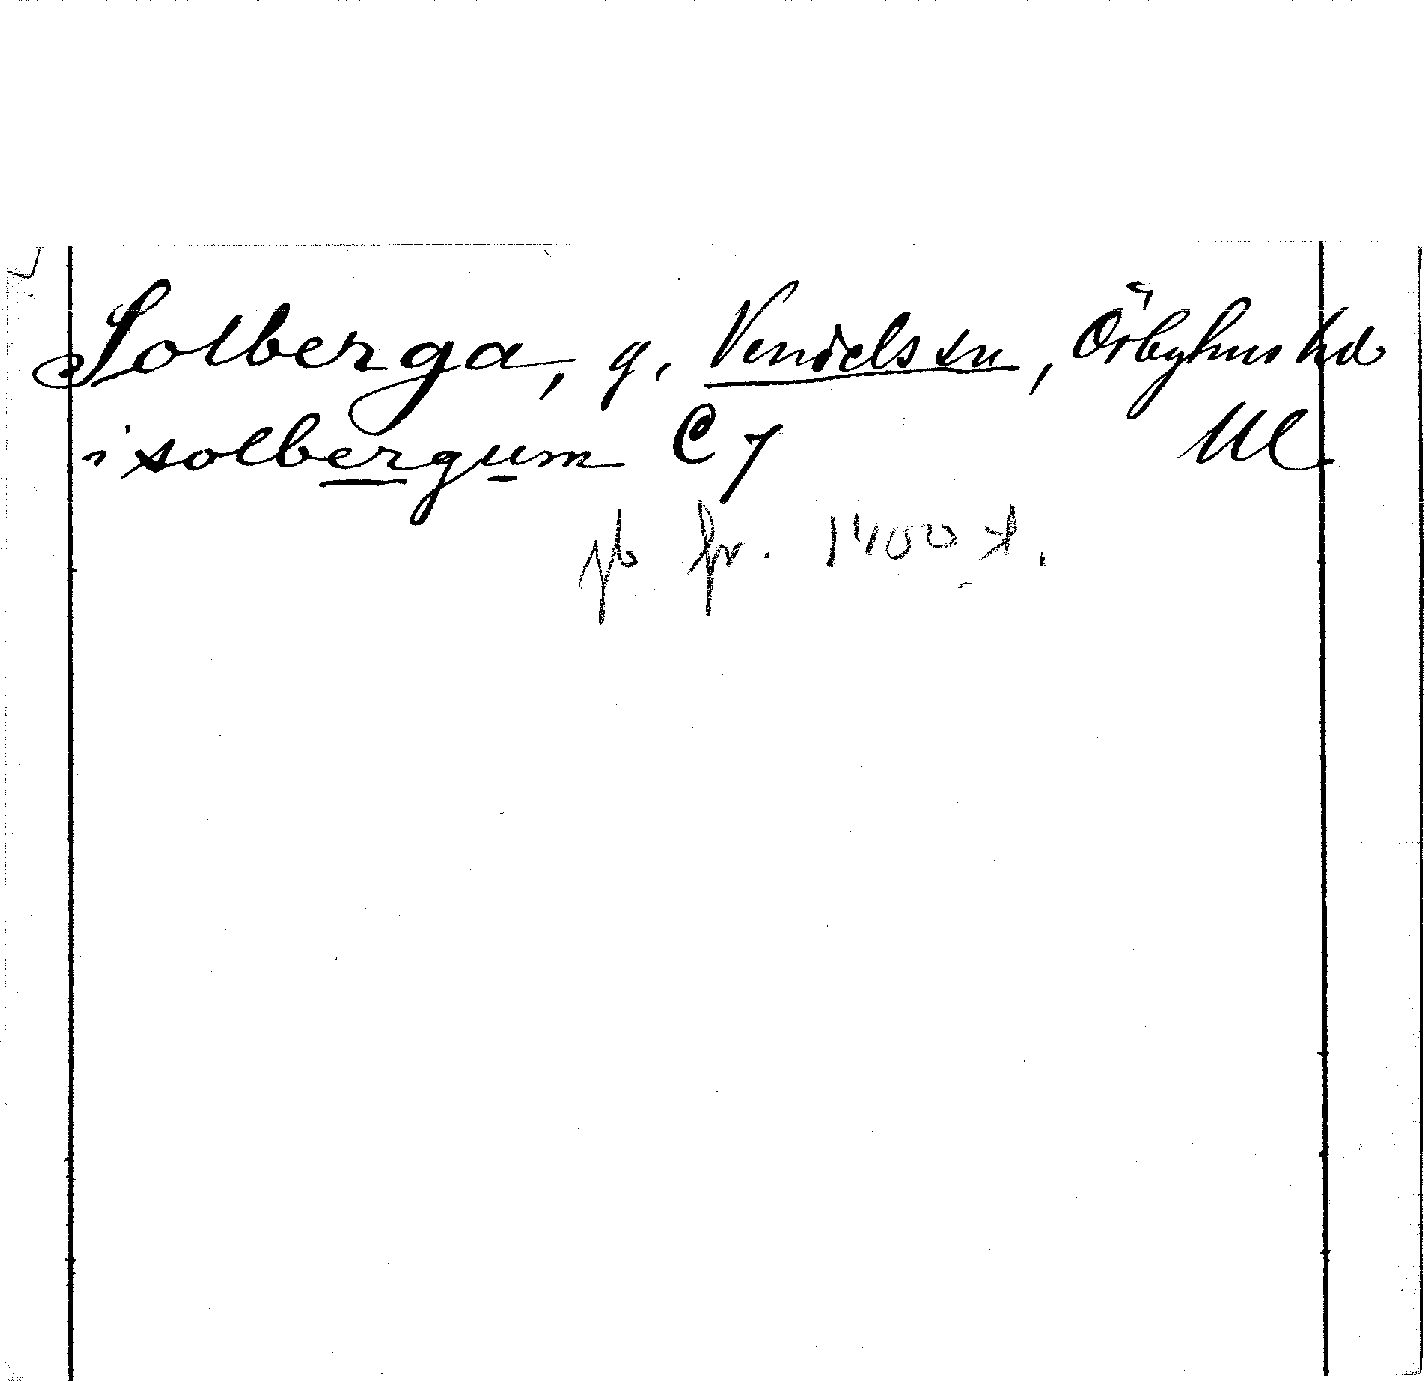 Solberga, g. Vendels sn, Örbyhus hd
i solbergum C 7 Ul
jb fr. 1400 t.